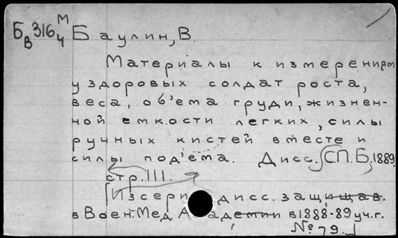 Б 316 М
В 4 Баулин, В.
Материалы к измерениям
у здоровых солдат роста,
веса, об'ема груди, жизнен-
ной емкости легких, силы
ручных кистей вместе и
силы под'ема. Дисс. СПБ, 1889
стр. III.
Изсери дисс. защищав.
в Воен. Мед Академии в 1888-89 уч. г.
№ 79.